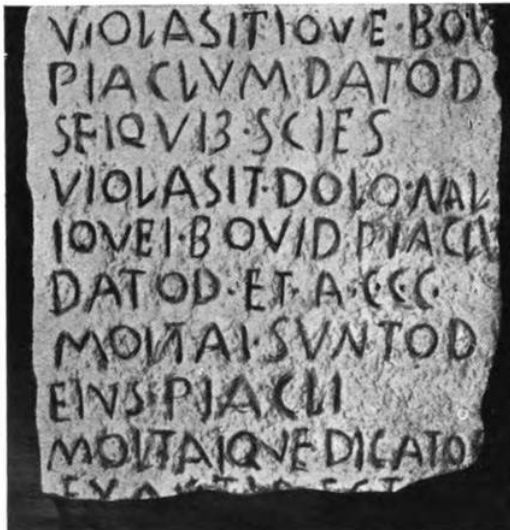 VIOLASIT IOVE·BOV
PIACLVM DATOD
SEIQVIS·SCIES
VIOLASIT·DOLO·MAL
IOVEI·BOVID·PIACLV
DATOD·ET·A·CCC·
MOLTAI·SVNTOD
EIVS·PIACLI
MOLTAIQVE DICATO